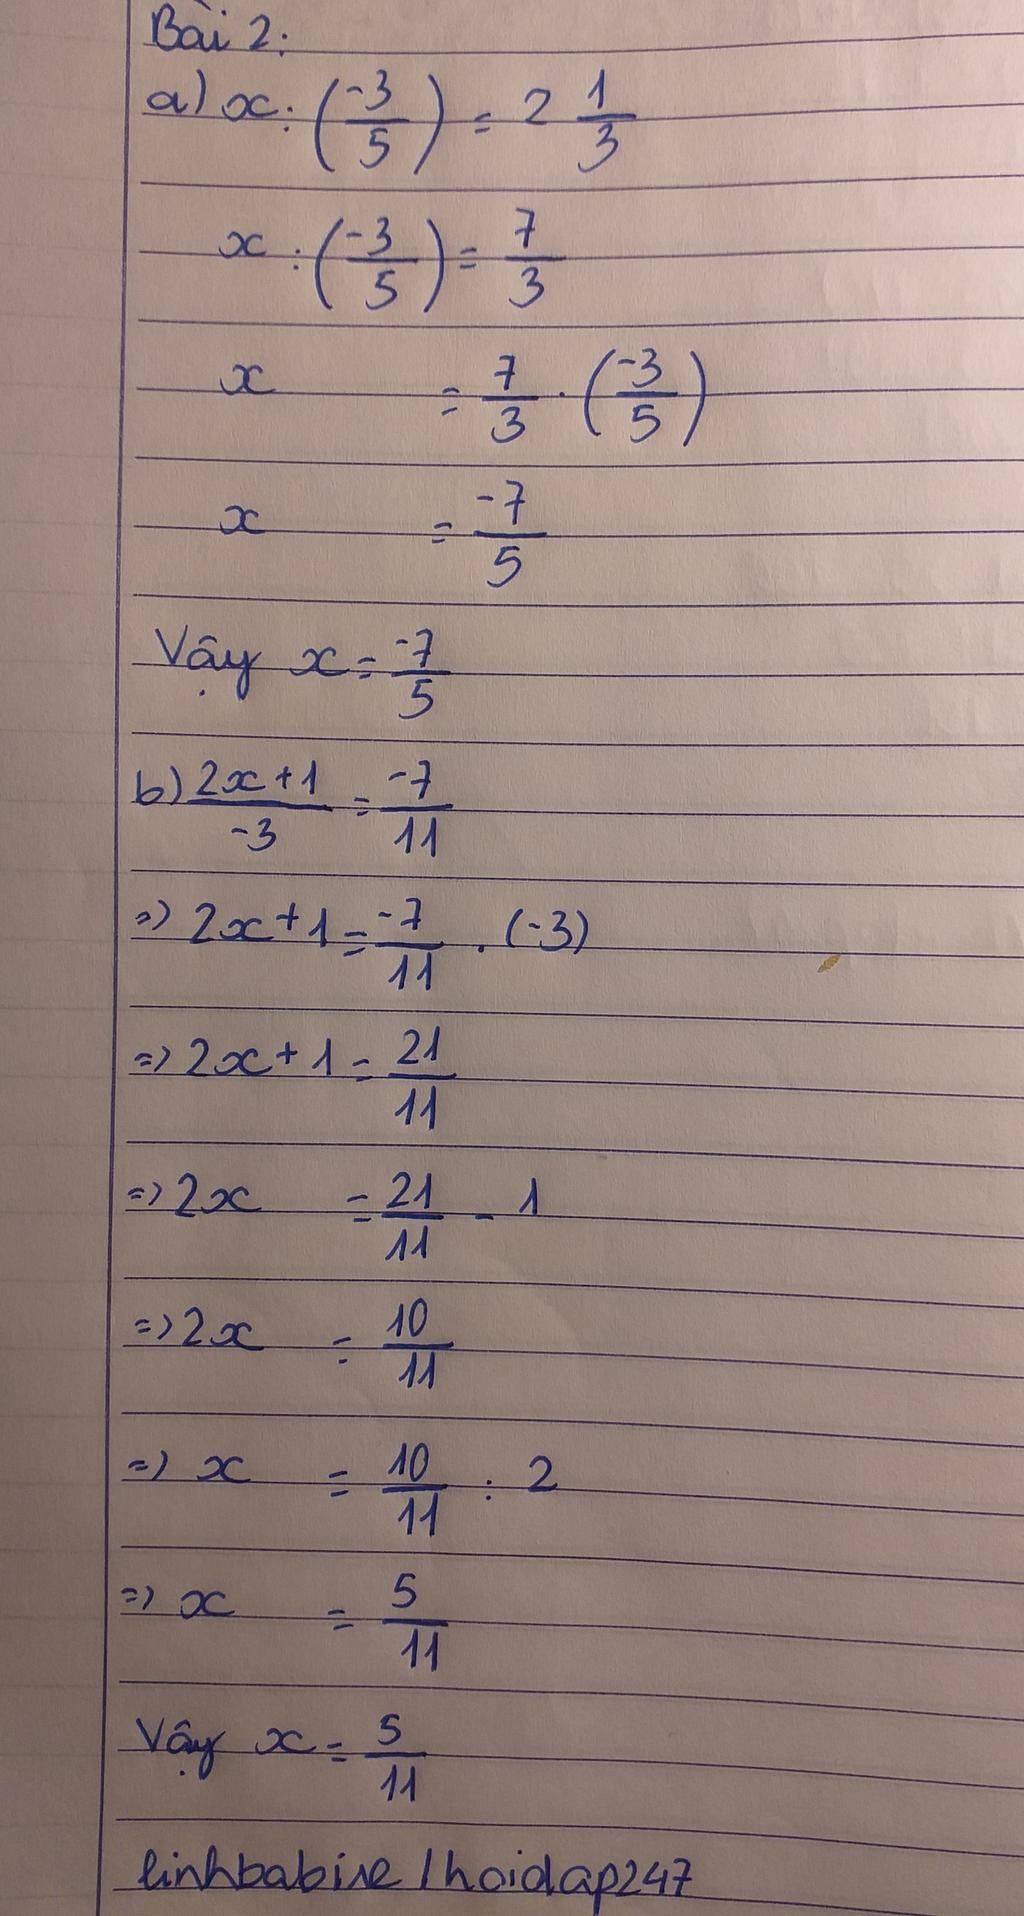 Bài 2:
a) x : (-3/5) = 2 1/3
x : (-3/5) = 7/3
x = 7/3 . (-3/5)
x = -7/5
Vậy x = -7/5
b) 2x+1/-3 = -7/11
=> 2x+1 = -7/11 . (-3)
=> 2x+1 = 21/11
=> 2x = 21/11 - 1
=> 2x = 10/11
=> x = 10/11 : 2
=> x = 5/11
Vậy x = 5/11
linhbabine / hoidap247